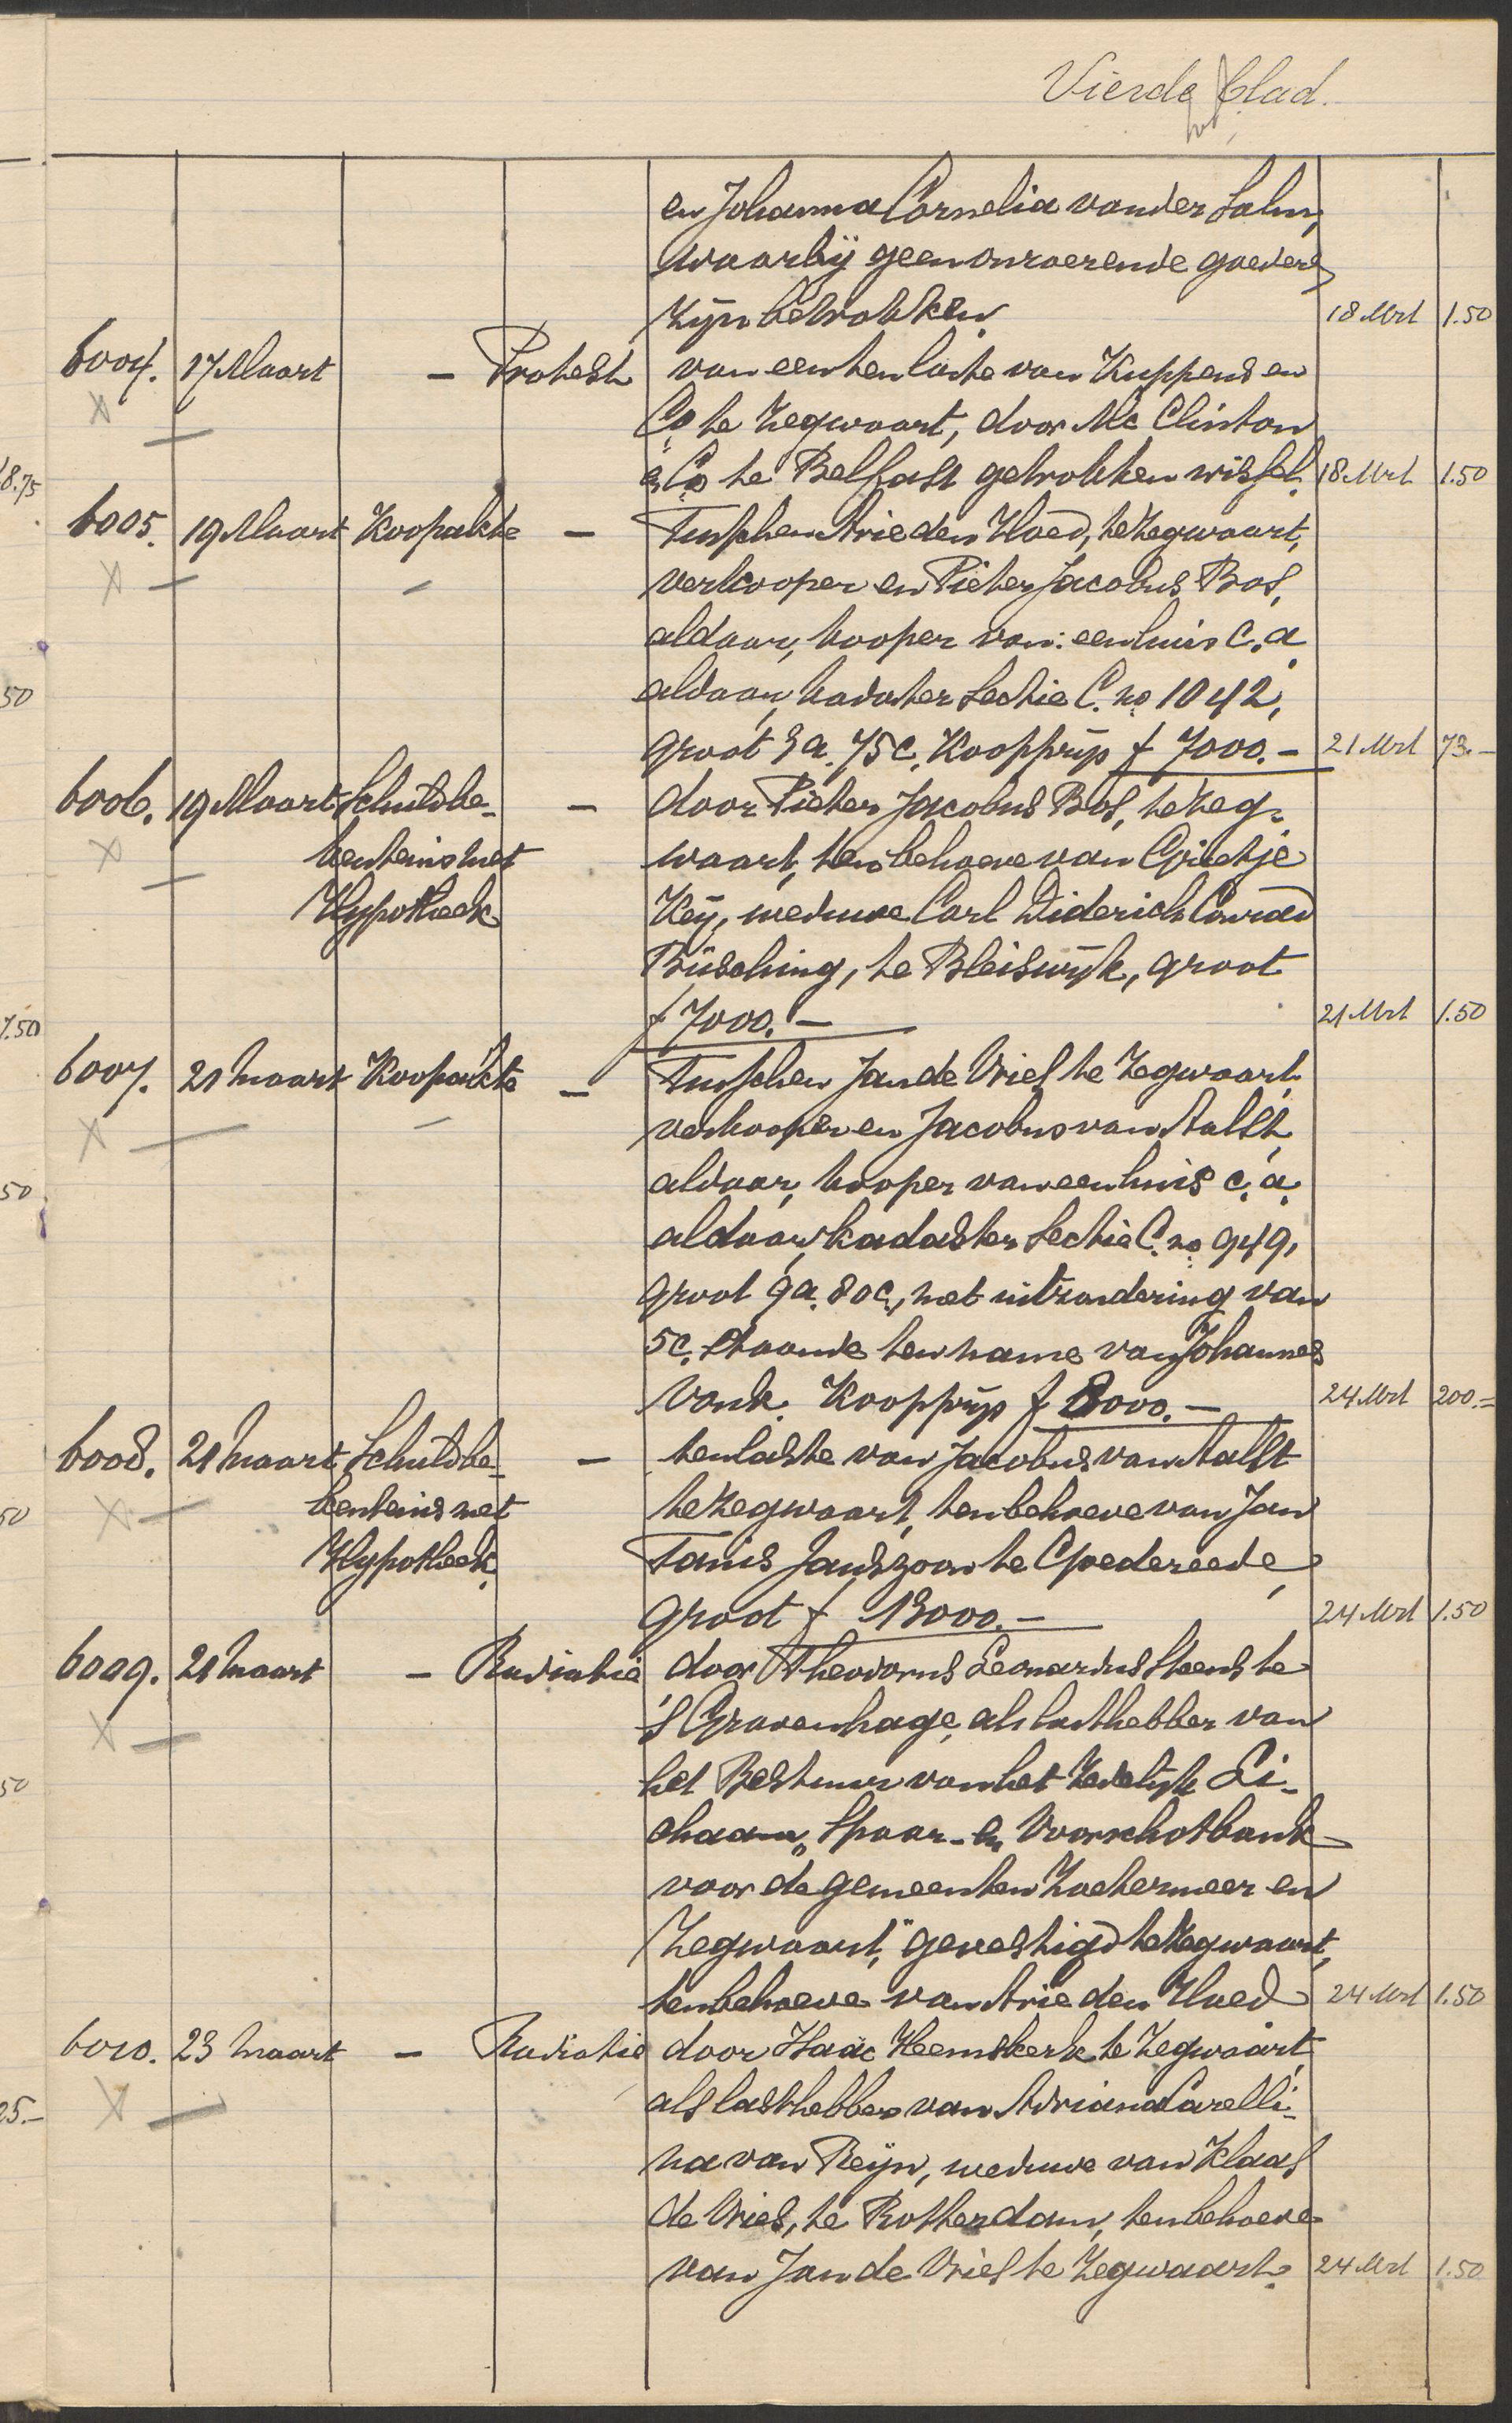 Vierde blad.
en Johanna Cornelia van der Salm,
waarbij geen onroerende goederen
zijn betrokken. 18 Mrt 1.50
6004. 17 Maart - Protest van een ten laste van Kuppens en
Co te Zegwaart, door Mc Clinton
& Co te Belfast getrokken wissel. 18 Mrt 1.50
8.75
6005. 19 Maart Koopakte - Tusschen Arie den Hoed, te Zegwaart,
verkooper en Pieter Jacobus Bos,
aldaar, kooper van: een huis c.a.
50 aldaar, kadaster Sectie C. no 1042,
groot 3 a. 75 c. Koopprijs f 7000.- 21 Mrt 73.-
6006. 19 Maart Schuldbe- - door Pieter Jacobus Bos, te Zeg-
kentenis met waart, ten behoeve van Grietje
Hypotheek Keij, weduwe Carl Diderich Conrad
Büsching, te Bleiswijk, groot
7.50 f 7000.- 21 Mrt 1.50
6007. 21 Maart Koopakte - Tusschen Jan de Vries te Zegwaart,
verkooper en Jacobus van Aalst,
50 aldaar, kooper van een huis c.a.
aldaar, kadaster Sectie C. no 949,
groot 9 a. 80 c., met uitzondering van
5 c. staande ten name van Johannes
Vonk. Koopprijs f 8000.- 24 Mrt 200.=
6008. 21 Maart Schuldbe- - ten laste van Jacobus van Aalst
50 kentenis met te Zegwaart, ten behoeve van Jan
Hypotheek. Tanis Janszoon te Goedereede,
groot f 13000.- 24 Mrt 1.50
6009. 21 Maart - Radiatie door Theodorus Leonardus Steens te
's Gravenhage, als lasthebber van
50 het Bestuur van het Zedelijk Li-
chaam „Spaar- en Voorschotbank
voor de gemeenten Zoetermeer en
Zegwaart," gevestigd te Zegwaart,
ten behoeve van Arie den Hoed 24 Mrt 1.50
6010. 23 Maart - Radiatie door Isaäc Heemskerk te Zegwaart,
25.- als lasthebber van Adriana Carelli-
na van Reijn, weduwe van Klaas
de Vries, te Rotterdam, ten behoeve
van Jan de Vries te Zegwaart. 24 Mrt 1.50